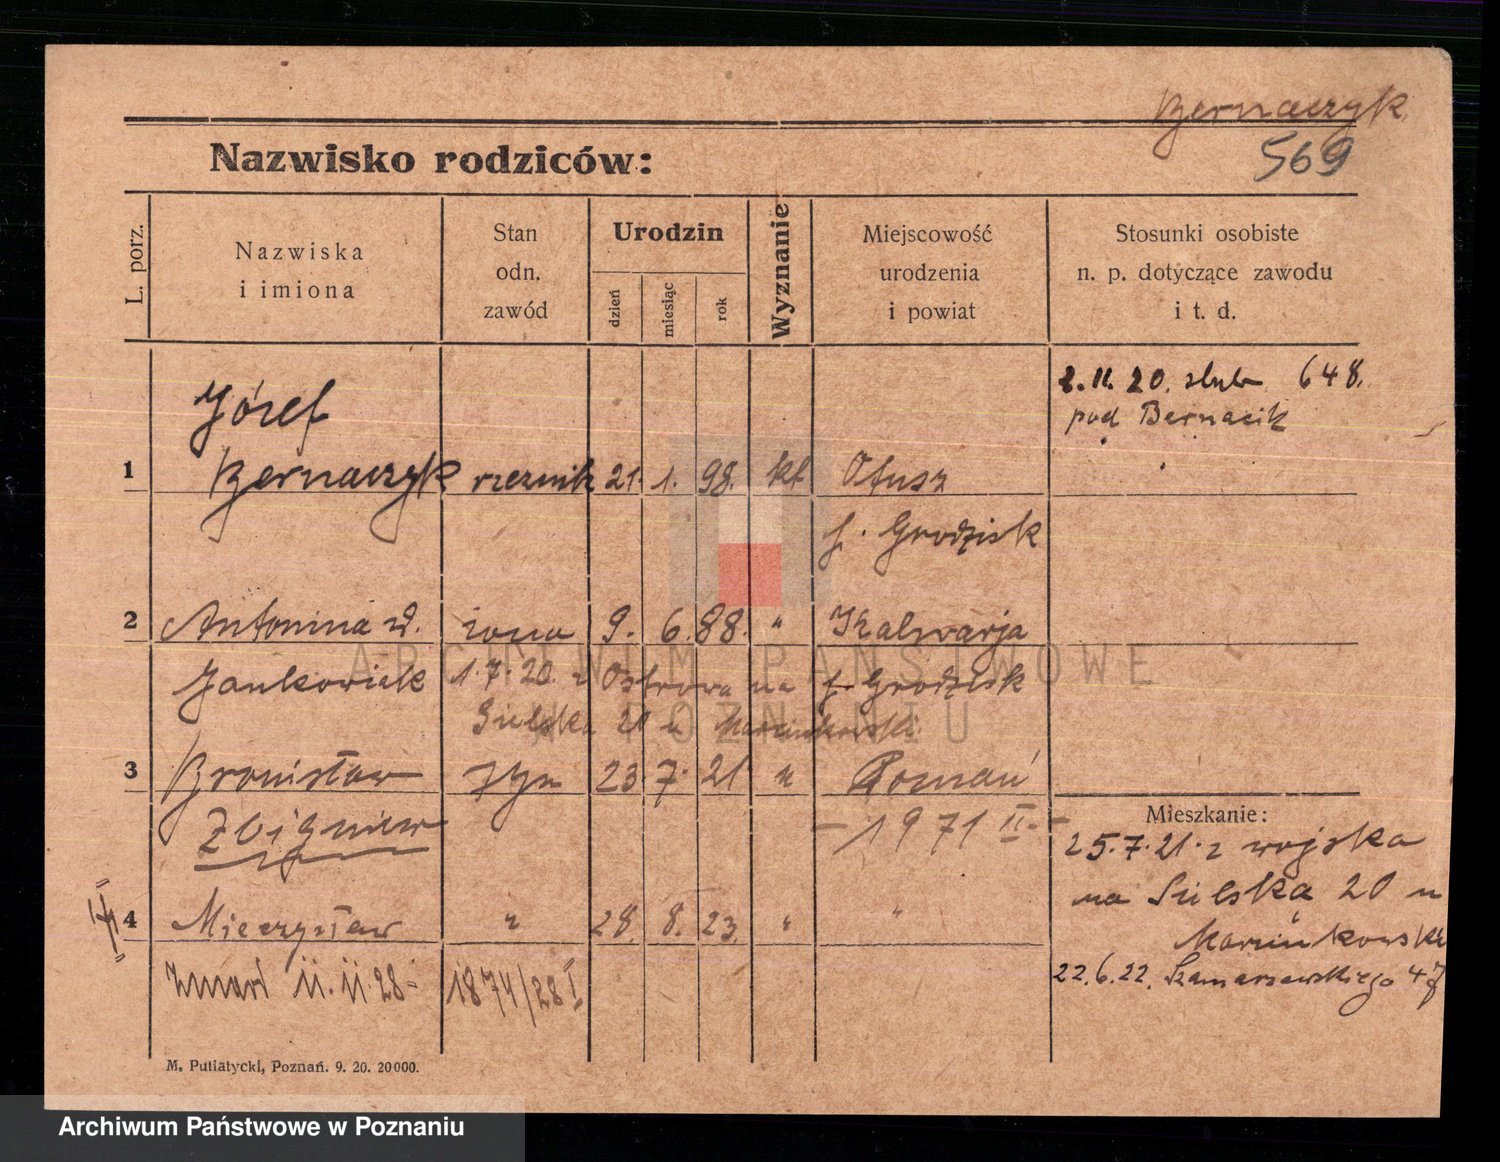 Bernaczyk
569
Nazwisko rodziców:
L. porz.
Nazwiska
i imiona
Stan
odn.
zawód
Urodzin
dzień
miesiąc
rok
Wyznanie
Miejscowość
urodzenia
i powiat
Stosunki osobiste
n. p. dotyczące zawodu
i t. d.
2. 11. 20. ślub 648.
pod Bernacik
Józef
1 Bernaczyk rzeźnik 21. 1. 98. kt Otusz
p. Grodzisk
2 Antonina z d. żona 9. 6. 88. " Kalwarja
Jankowiak 1. 7. 20. z Ostrowa na p. Grodzisk
Sielska 20 u Marcinkowski
3 Bronisław syn 23 7. 21 " Poznań
Zbigniew - 1971 II. -
Mieszkanie:
25. 7. 21. z wojska
na Sielska 20 u
Marcinkowski
22. 6. 22. Szamarzewskiego 47
4 Mieczysław " 28. 8. 23. " "
Zmarł 11. 11. 28 - 1874/28 I
M. Putiatycki, Poznań. 9. 20. 20000.
ARCHIWUM PAŃSTWOWE
W POZNANIU
Archiwum Państwowe w Poznaniu